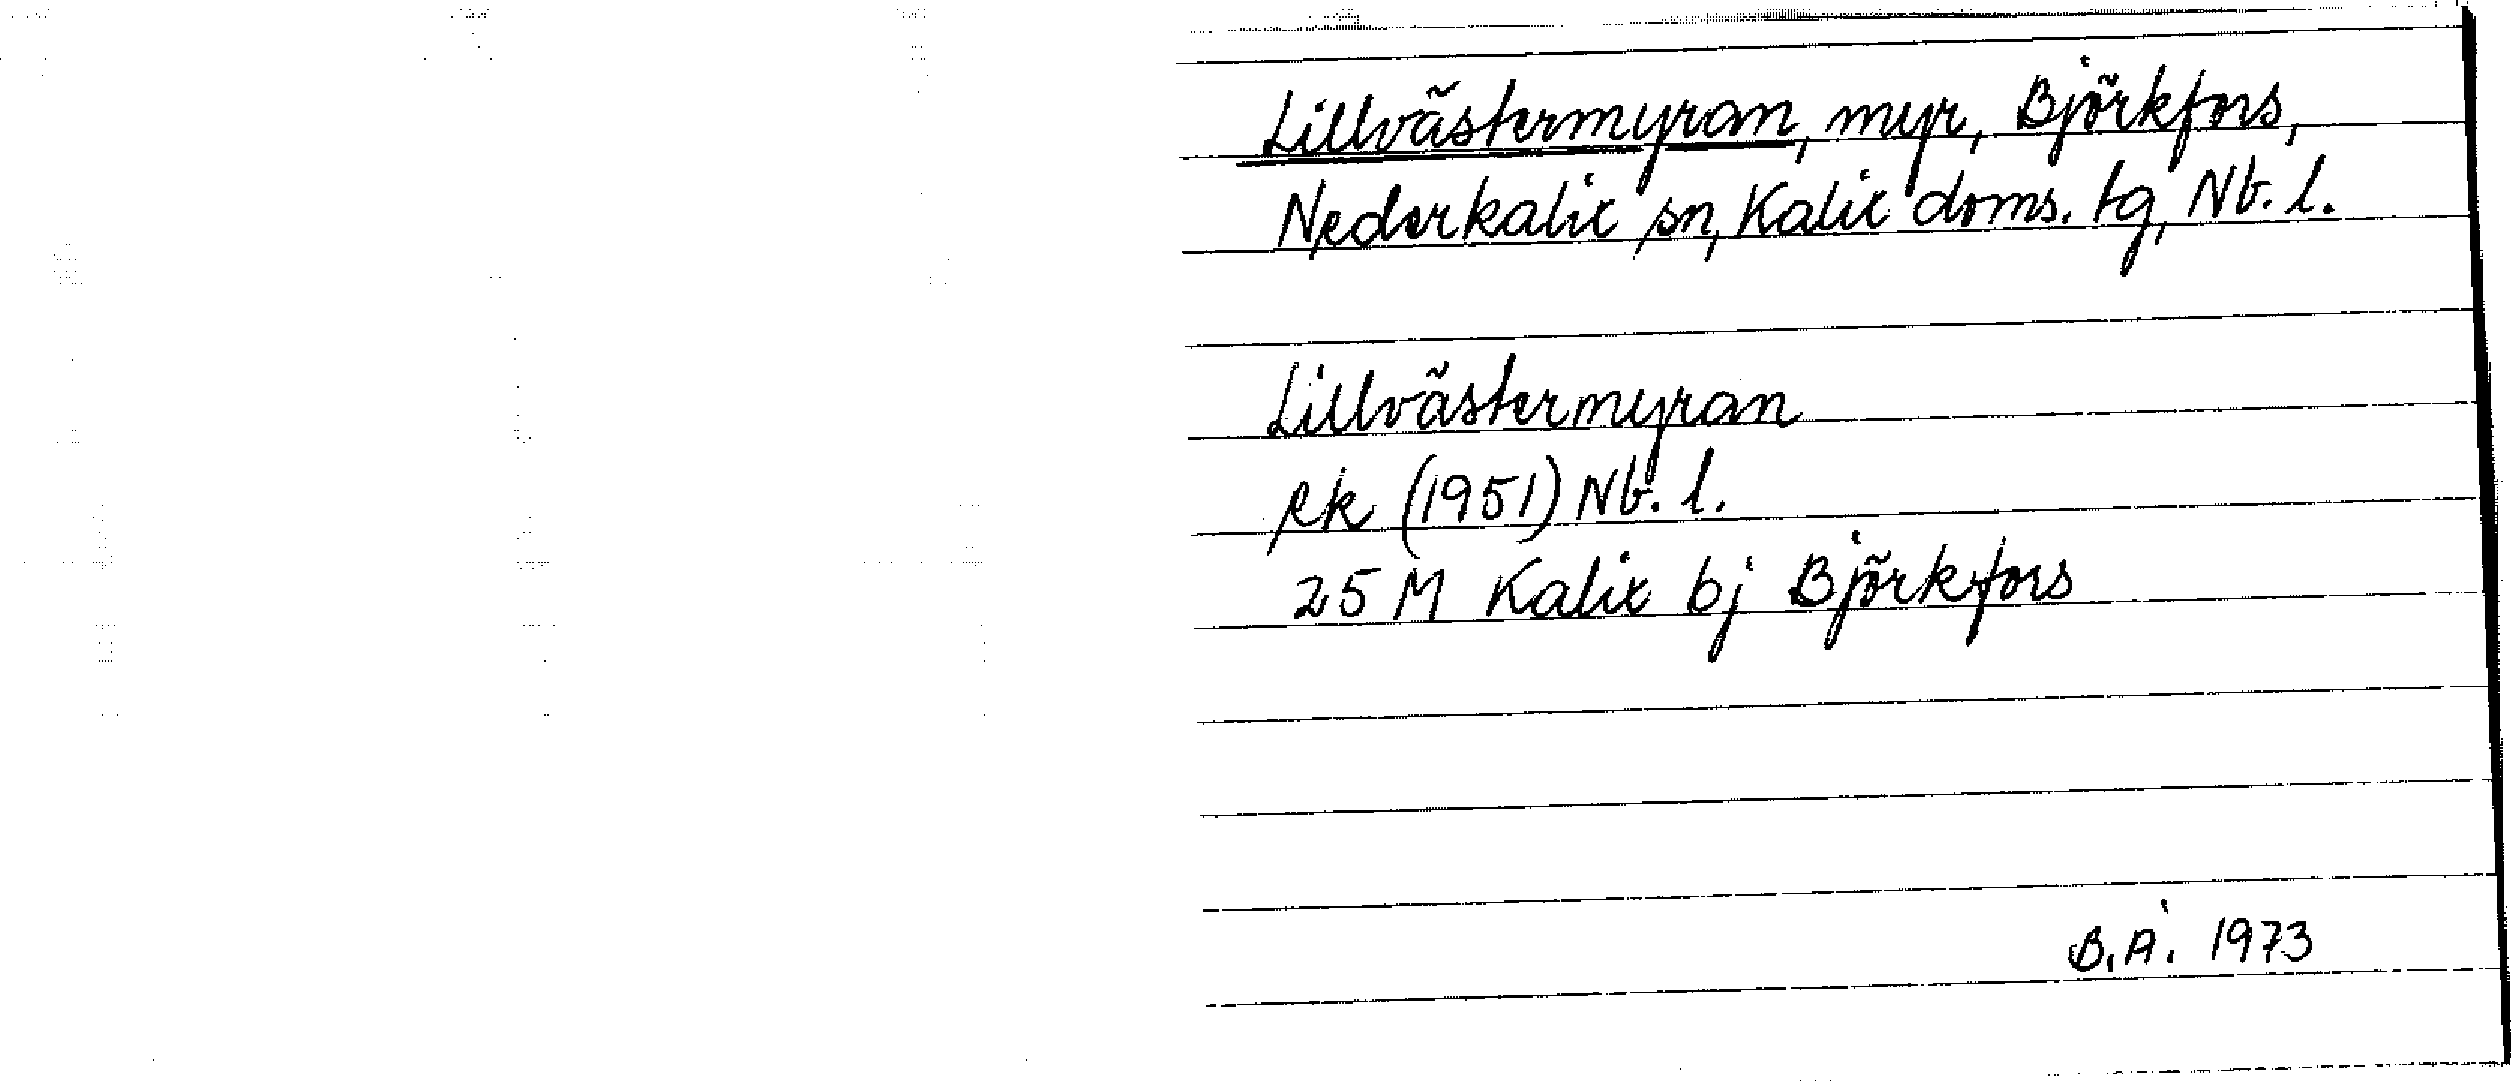 Lillvästermyran, myr, Björkfors,
Nederkalix sn, Kalix doms. tg, Nb. l.
Lillvästermyran
ek (1951) Nb. l.
25 M Kalix bj Björkfors
B. Å. 1973